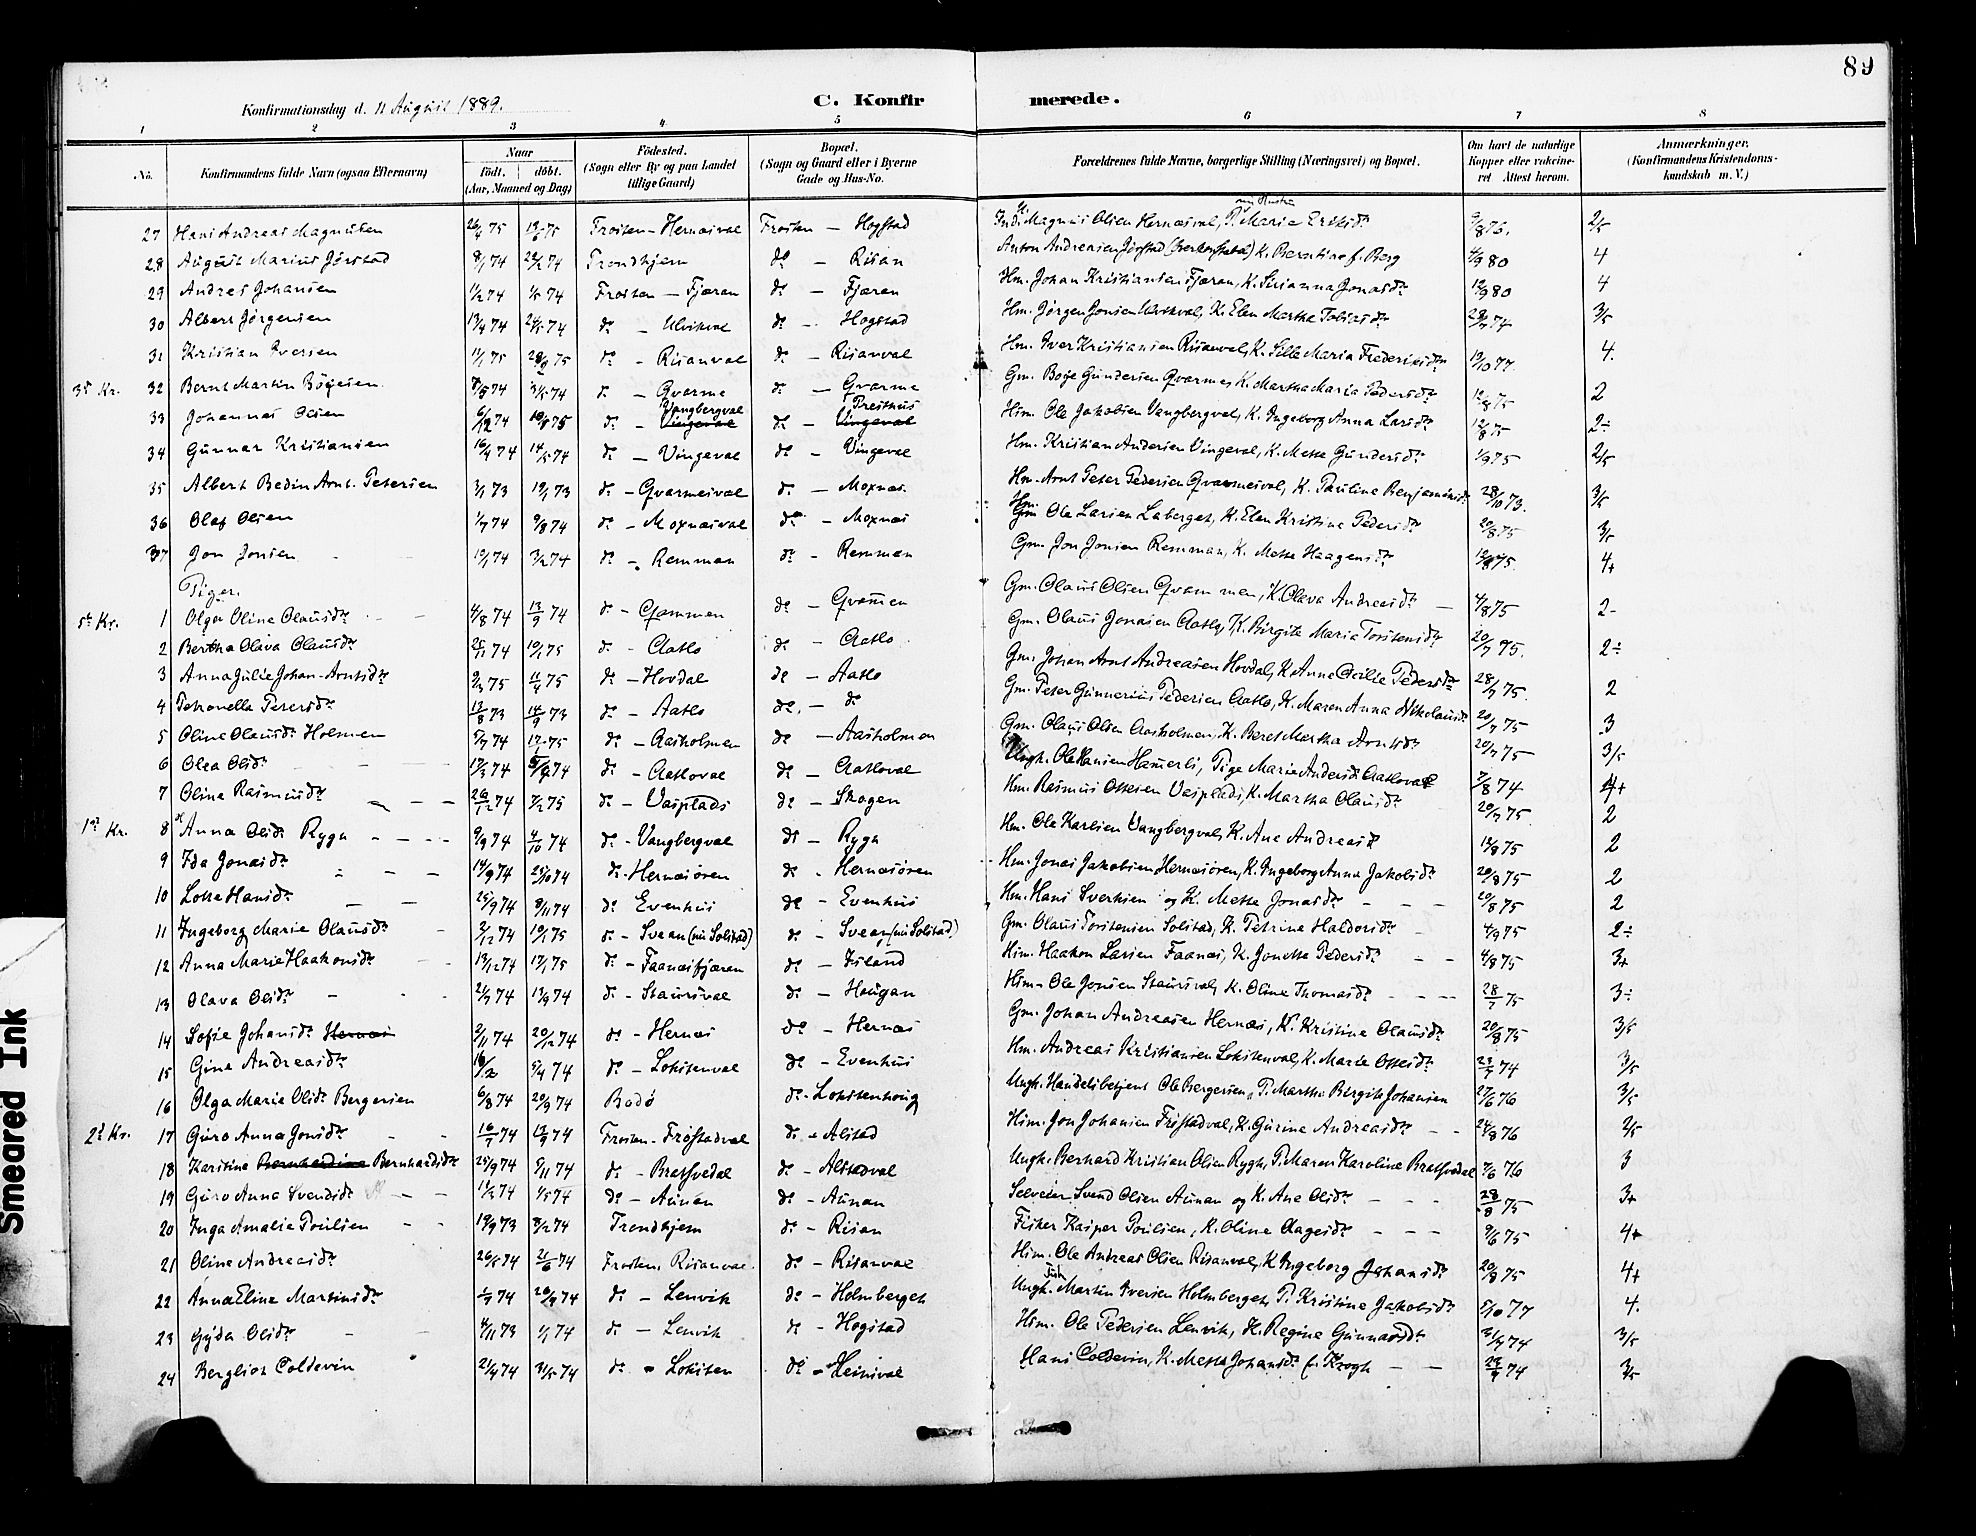 89
Konfirmationsdag d. 11 August 1889.
C. Konfirmerede.
1 2 3 4 5 6 7 8
No.
Konfirmandens fulde Navn (ogsaa Efternavn)
Naar
födt. döbt.
(Aar, Maaned og Dag)
Födested.
(Sogn eller By og paa Landet
tillige Gaard)
Bopæl.
(Sogn og Gaard eller i Byerne
Gade og Hus-No.
Forældrenes fulde Navne, borgerlige Stilling (Næringsvei) og Bopæl.
Om havt de naturlige
Kopper eller vakcine-
ret Attest herom.
Anmærkninger.
(Konfirmandens Kristendoms-
kundskab m. V.)
27 Hans Andreas Magnusen 26/4 75 Frosten - Hernæsval Frosten - Hogstad Magnus Olsen Hernæsval, P. Marie Eriksdr 9/8 76. 2/5
28 August Marius Jörstad 8/1 74 22/2 74 Trondhjem do - Risan Anton Andreasen Jörstad K. Berntine f. Berg 4/9 80 4
29 Andres Johansen 11/2 74 1/5 74 Frosten - Fjæran do - Fjæran Hm. Johan Kristiansen Fjæran, K. Sirianna Jonasdr 12/9 80 4
30 Albert Jörgensen 13/4 74 24/5 74 do - Ulvikval do - Hogstad Hm. Jörgen Jonsen Ulvikval, K. Elen Martha Tobiasdr 28/7 74 3/5
31 Kristian Iversen 11/1 75 28/2 75 do - Risanval do - Risanval Hm. Iver Kristiansen Risanval, K. Sille Maria Frederiksdr 19/10 77. 4.
3die Kr. 32 Bernt Martin Böyesen 3/5 74 31/5 74 do - Qvarme do - Qvarme Gm. Boye Gundersen Qvarme, K. Martha Maria Pedersdr 12/8 75 2
33 Johannes Olsen 6/12 74 do - Vangbergval Vingeval do - Presthus Vingeval Hm. Ole Jakobsen Vangbergval, K. Ingeborg Anna Larsdr 12/8 75 2÷
34 Gunnar Kristiansen 16/4 74 14/5 74 do - Vingeval do - Vingeval Hm. Kristian Andersen Vingeval, K. Mette Gundersdr 1/9 75 2/5
35 Albert Bedin Arnt. Petersen 3/1 73 19/1 73 do - Qvarmesval do - Moxnes. Hm. Arnt Peter Pedersen Qvarmesval, K. Pauline Benjaminsdr 28/10 73. 3/5
36 Olaf Olsen 1/7 74 9/8 74 do - Moxnæsval do - Moxnæs Hm. Ole Larsen Laberget, K. Elen Kristine Pedersdr 20/8 75 3/5
37 Jon Jonsen 10/1 74 3/2 74 do - Remman do - Remman Gm. Jon Jonsen Remman, K. Mette Haagensdr 12/8 75. 4+
Piger.
5te Kr. 1 Olga Oline Olausdr 4/8 74 13/9 74 do - Qvammen do - Qvammen Gm. Olaus Olsen Qvammen, K. Olava Andreasdr 4/8 75 2-
2 Bertha Olava Olausdr 25/11 74 10/1 75 do - Aatlo do - Aatlo Gm. Olaus Jonasen Aatlo, K. Birgitte Maria Torstensdr 20/7 75. 2÷
3 Anna Julie Johan-Arntsdr 2/3 75 11/4 75 do - Hovdal do - Aatlo Gm. Johan Arnt Andreasen Hovdal, K. Anne Cecilie Pedersdr 28/7 75. 2
4 Petronelle Petersdr 13/8 73 14/9 73 do - Aatlo do - do Gm. Peter Gunnerius Pedersen Aatlo, K. Maren Anna Nikolausdr 20/7 75 3
5 Oline Olausdr Holmen 5/7 74 17/1 75 do - Aasholmen do - Aasholmen Gm. Olaus Olsen Aasholmen, K. Beret Martha Arntsdr 20/7 75 3/5
6 Olea Olsdr 17/3 74 do - Aatloval do - Aatloval Ungk. Ole Hansen Hamerli, Pige Marie Andersdr Aatloval 7/8 74 4+
7 Oline Rasmusdr 26/12 74 7/2 75 do - Vasplads do - Skogen Hm. Rasmus Ottesen Vasplads, K. Martha Olausdr 20/7 75. 2
1ste Kr. 8 Anna Olsdr Rygn 9/9 74 4/10 74 do - Vangbergval do - Rygn Hm. Ole Karlsen Vangbergval, K. Ane Andreasdr 12/8 75 2
9 Ida Jonasdr 14/9 74 25/10 74 do - Hernæsören do - Hernæsören Hm. Jonas Jakobsen Hernæsören, K. Ingeborg Anna Jakobsdr 20/8 75 2
10 Lotte Hansdr 25/9 74 8/11 74 do Evenhus do - Evenhus Hm. Hans Sverksen og K. Mette Jonasdr 20/8 75 2
11 Ingeborg Marie Olausdr 2/12 74 10/1 75 do - Svean (nu Solstad) do - Svean (nu Solstad) Gm. Olaus Torstensen Solstad, K. Petrine Haldorsdr 4/9 75 2÷
12 Anna Marie Haakonsdr 13/12 74 17/1 75 do - Faanæsfjæran do - Island Hm. Haakon Larsen Faanæs, K. Jonette Pedersdr 4/8 75 3+
13 Olava Olsdr 21/7 74 13/9 74 do - Staursval do - Haugan Hm. Ole Jonsen Staursval, K. Oline Thomasdr 28/7 75 3÷
14 Sofie Johansdr Hernæs 2/11 74 20/12 74 do - Hernæs do - Hernæs Gm. Johan Andreasen Hernæs, K. Kristine Olausdr 20/8 75 3/5
15 Gina Andreasdr 16/2 5/4 74 do - Loktenval do - Evenhus Hm. Andreas Kristiansen Loktenval, K. Marie Ottesdr 23/7 74 3/5
16 Olga Marie Olsdr Bergersen 6/8 74 20/9 74 Bodö do - Loktenhaug Ungk. Handelsbetjent Ole Bergersen, P. Martha Birgit Johansen 27/6 76 3/5
2d Kr. 17 Guro Anna Jonsdr 16/7 74 13/9 74 Frosten - Fröstadval do - Alstad Hm. Jon Johansen Fröstadval, K. Gurine Andreasdr 24/8 76 2/5
18 Karstine Bernhardine Bernhardsdr 25/9 74 8/11 74 do - Bratsvedal do - Alstadval Ungk. Berhard Kristian Olsen Rygh, P. Maren Karoline Bratsvedal 7/6 76 3
19 Guro Anna Svendsdr 17/3 74 1/5 74 do - Aunan do - Aunan Selveier Svend Olsen Aunan og K. Ane Olsdr 28/8 75 3+
20 Inga Amalie Poulsen 19/9 73 8/2 74 Trondhjem do - Risan Fisker Kasper Poulsen, K. Oline Aagesdr 9/6 75 4+
21 Oline Andreasdr 26/5 74 21/6 74 Frosten, Risanval do - Risanval Hm. Ole Andreas Olsen Risanval, K. Ingeborg Johansdr 20/8 75 4+
22 Anna Eline Martinsdr 20/9 74 do - Lenvik do - Holmberget Ungk. Martin Iversen Holmberget, P. Kristine Jakobsdr 5/10 77 4.
23 Gyda Olsdr 4/11 73 1/1 74 do - Lenvik do - Hogstad Hm. Ole Pedersen Lenvik, K. Regine Gunnarsdr 31/7 74 3/5
24 Bergliot Coldevin 21/4 74 31/5 74 do - Lokiten do - Heinsval Hans Coldevin, K. Mette Johansdr f. Krogh 23/7 74 3/5
Smeared Ink